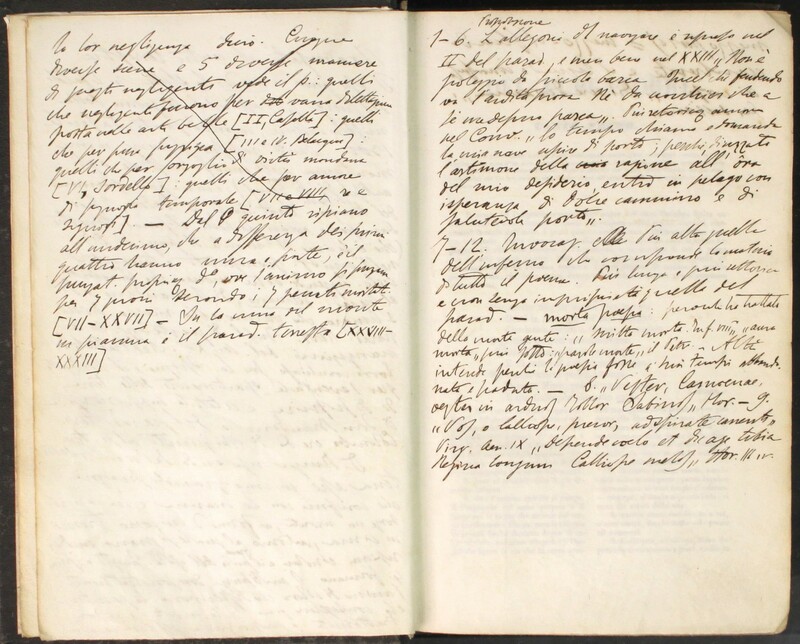 la lor negligenza diversi. Cinque
diverse schiere e 5 diverse maniere
di questi negligenti vede il p.: quelli
che negligenti furono per vana dilettazione
posta nelle arti belle [II, Casella]: quelli
che per pura pigrizia [III e IV. Belacqua]:
quelli che per orgoglio di vività mondana
[VI, Sordello]: quelli che per amore
di signoria temporale [VII e VIII, re e
signori]. — Dal P quinto ripiano
all'undecimo, che a differenza dei primi
quattro hanno mura, porte, è il
purgat. proprio d°, ove l'animo si purga
per 7 gironi secondo i 7 peccati mortali.
[VII–XXVII] — In la cima del monte
in pianura è il parad. terrestre [XXVIII–
XXXIII]
Proposizione
1–6. L'allegoria del navigare è ripresa nel
II del parad., e men bene nel XXIII „ Non è
poleggio da piccola barca Quel che fendendo
va l'ardita prora Nè da nocchier che a
sè medesmo parca „.
nel Conv. „ lo tempo chiama e domanda
la mia nave uscire di porto; perchè, drizzato
l'artimone della ragione all'ôra
del mio desiderio, entro in pelago con
isperanza di dolce cammino e di
salutevole porto „.
7–12. Invocaz. Più alta quella
dell'inferno che corrisponde la materia
di tutto il poema. Più lunga e più rettorica
e con lunga similitudine quella del
parad. — morta poesia: perocchè ha trattato
della morta gente: „ scritta morta Inf. VIII „ „ aura
morta „ più sotto: „ parole morte „ il Petr. — Altri
intende perchè la poesia fosse a' suoi tempi abbando
nata e perduta. — 8. „ Vester, Camoenae,
vester in arduos Tollor Sabinos „ Hor. — 9.
„ Vos, o Calliope, precor, adspirate canenti „
Virg. Aen. IX „ Descende coelo et dic age tibia
Regina longum Calliope melos „ Hor. III iv.